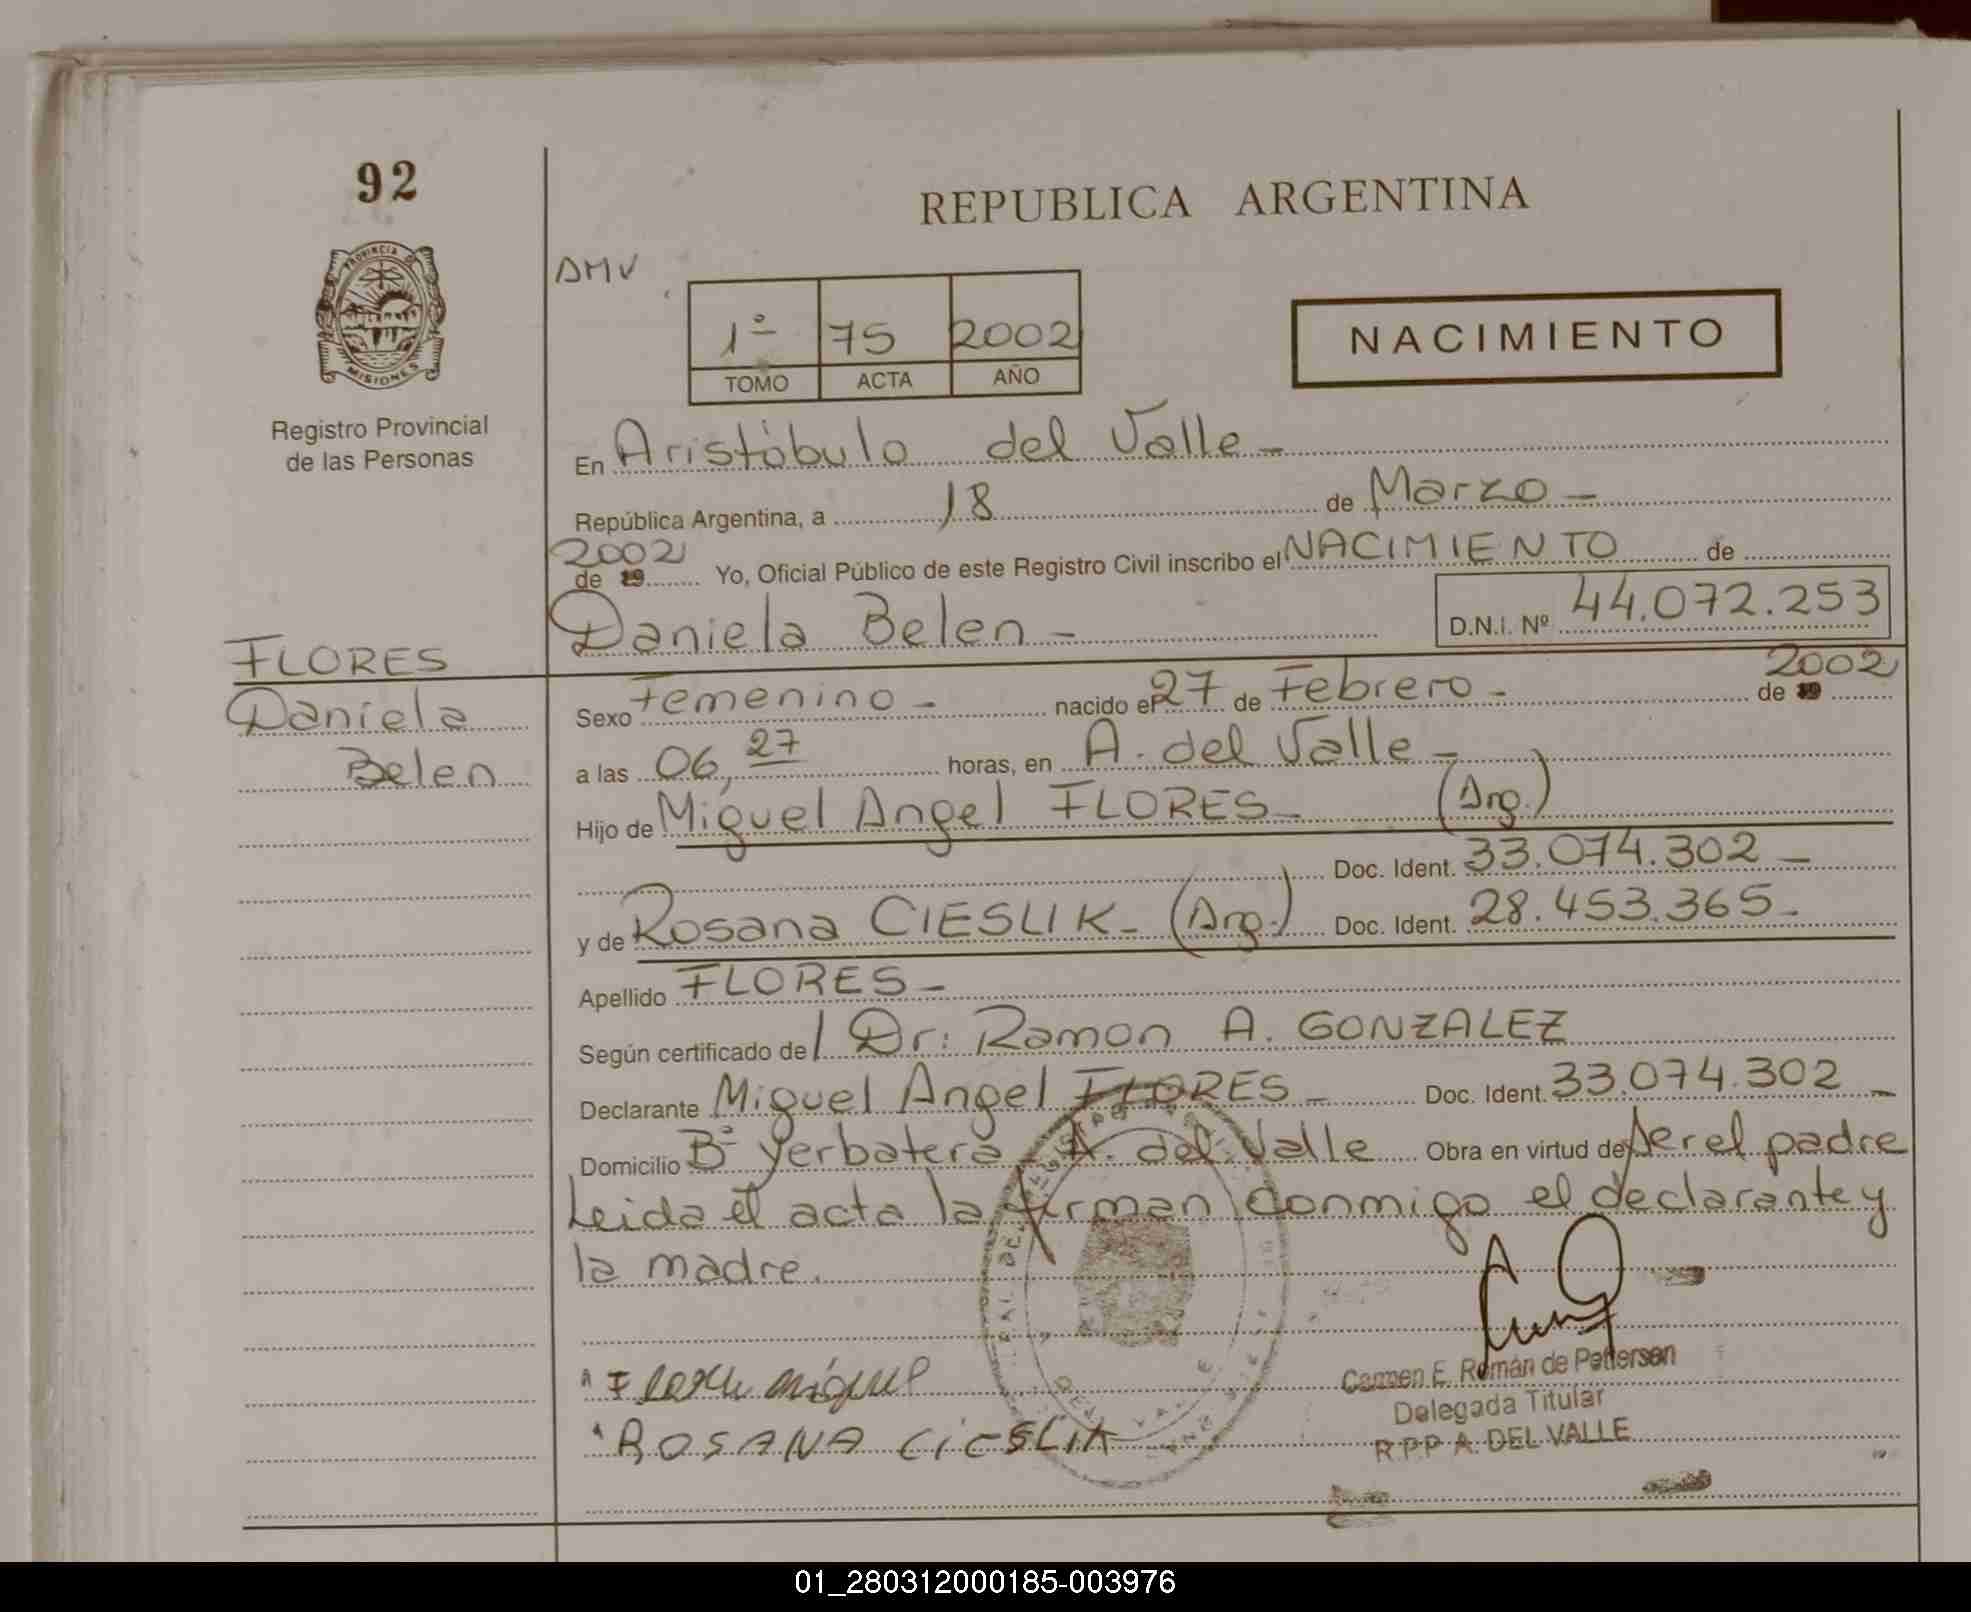 92
REPUBLICA ARGENTINA
PROVINCIA DE
MISIONES
DMV
1º 75 2002
TOMO ACTA AÑO
NACIMIENTO
Registro Provincial
de las Personas
En Aristóbulo del Valle -
República Argentina, a 18 de Marzo -
2002
de 19 Yo, Oficial Público de este Registro Civil inscribo el NACIMIENTO de
Daniela Belen - D.N.I. Nº 44.072.253
FLORES
Daniela
Belen
Sexo Femenino - nacido el 27 de Febrero - de 19 2002
a las 06,27 horas, en A. del Valle -
Hijo de Miguel Angel FLORES - (Arg.)
Doc. Ident. 33.074.302 -
y de Rosana CIESLIK - (Arg.) Doc. Ident. 28.453.365 -
Apellido FLORES -
Según certificado del Dr: Ramon A. GONZALEZ
Declarante Miguel Angel FLORES - Doc. Ident. 33.074.302 -
Domicilio Bº Yerbatera - A. del Valle Obra en virtud de ser el padre
Leida el acta la firman conmigo el declarante y
la madre.
Flores miguel
ROSANA CiESLiK
Carmen E. Román de Petterson
Delegada Titular
R.P.P A. DEL VALLE
01_280312000185-003976